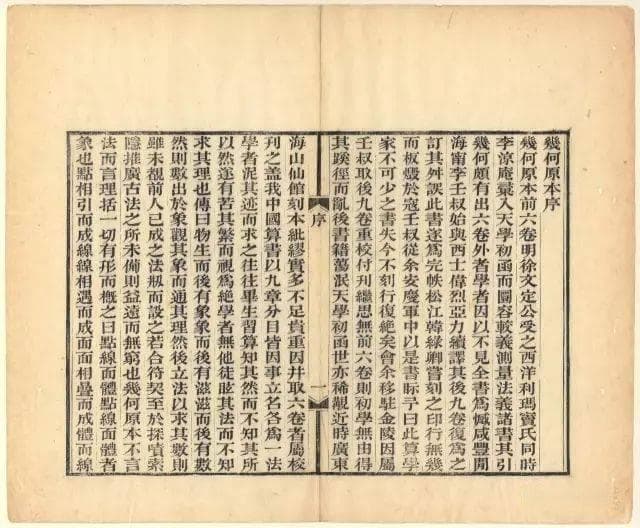 幾何原本序
幾何原本前六卷明徐文定公受之西洋利瑪竇氏同時
李涼庵彙入天學初函而圜容較義測量法義諸書其引
幾何頗有出六卷外者學者因以不見全書爲憾咸豐閒
海甯李壬叔始與西士偉烈亞力續譯其後九卷復爲之
訂其舛誤此書遂爲完帙松江韓綠卿嘗刻之印行無幾
而板燬於寇壬叔從余安慶軍中以是書眎予曰此算學
家不可少之書失今不刻行復絶矣會余移駐金陵因屬
壬叔取後九卷重校付刊繼思無前六卷則初學無由得
其蹊徑而亂後書籍蕩泯天學初函世亦稀覯近時廣東
序
一
海山仙館刻本紕繆實多不足貴重因并取六卷者屬校
刊之蓋我中國算書以九章分目皆因事立名各爲一法
學者泥其迹而求之往往畢生習算知其然而不知其所
以然遂有苦其繁而視爲絶學者無他徒眩其法而不知
求其理也傳曰物生而後有象象而後有滋滋而後有數
然則數出於象觀其象而通其理然後立法以求其數則
雖未覩前人已成之法刱而設之若合符契至於探賾索
隱推廣古法之所未備則益遠而無窮也幾何原本不言
法而言理括一切有形而概之曰點線面體點線面體者
象也點相引而成線線相遇而成面面相疊而成體而線